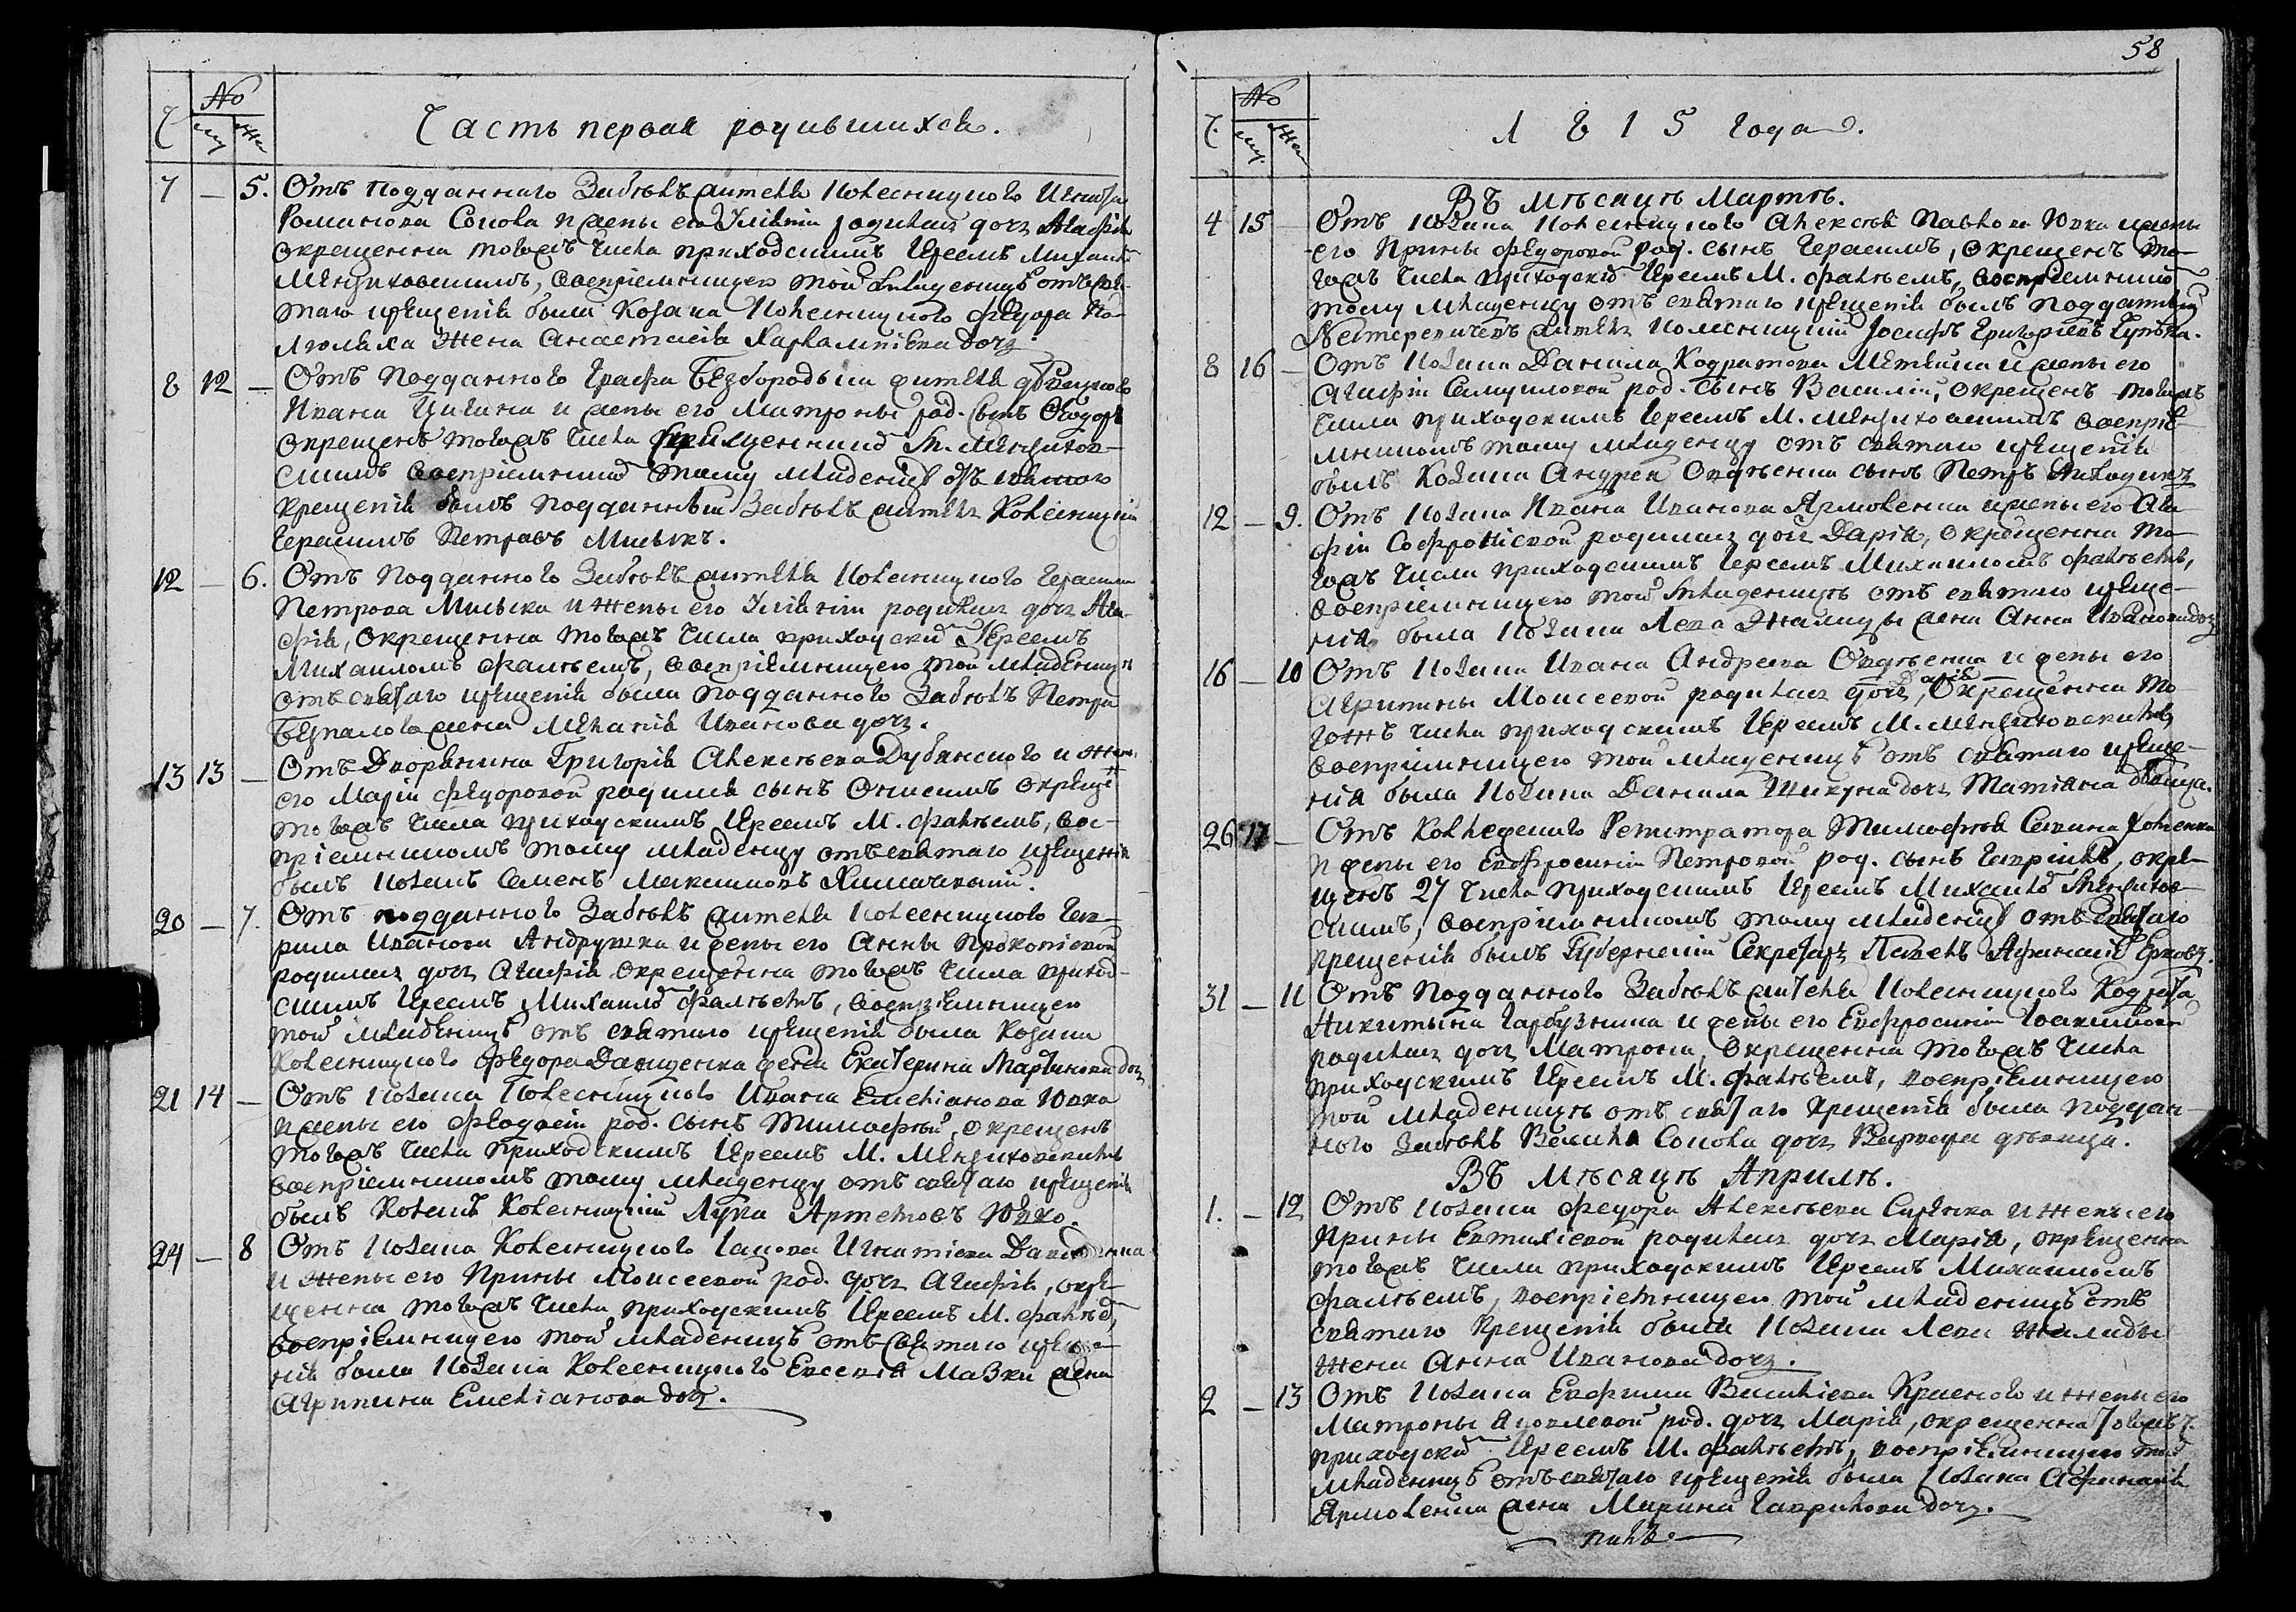 Ч
№
му
же
Часть первая родившихся.
7 — 5. Отъ подданнаго Забѣлѣ жителя Колесницкого Игната
Романова Сопова и жены его Уліяніи родилась дочъ Агафія
окрещенна тогожъ числа приходскимъ Іереемъ Михаиломъ
Мензиховскимъ, воспріемницею той младеницѣ отъ свя-
таго крещенія была козака Колесницкого Федора По-
люляха жена Анастасія Харлампіева дочъ.
8 12 — Отъ подданного Графа Безбородька жителя
Ивана Цигана и жены его Матроны род. сынъ Феодоръ
окрещенъ тогожъ числа Священникомъ М. Мензихов-
скимъ воспріемникомъ тому младенцу отъ святого
крещенія былъ подданный Забѣлѣ житель Колесницкій
Герасимъ Петровъ Миськъ.
12 — 6. Отъ подданного Забѣлѣ жителя Колесницкого Герасима
Петрова Миська и жены его Уліяніи родилась дочъ Ага-
фія, окрещенна тогожъ числа приходским Іереемъ
Михаиломъ Фалѣемъ, воспріемницею той младеницѣ
отъ святаго крещенія была подданного Забѣлѣ Петра
Безпалого жена Меланія Иванова дочъ.
13 13 — Отъ Дворянина Григорія Алексѣева Дубянского и жены
его Маріи Федоровой родился сынъ Онисимъ окрещенъ
тогожъ числа приходскимъ Іереемъ М. Фалѣемъ, вос-
пріемникомъ тому младенцу отъ святаго крещенія
былъ козакъ Семенъ Максимовъ
20 — 7. Отъ подданного Забѣлѣ жителя Колесницкого Гав-
рила Иванова Андрущка и жены его Анны Прокопіевой
родилась дочъ Агафія окрещенна тогожъ числа приход-
скимъ Іереемъ Михаиломъ Фалѣемъ, воспріемницею
той младеницѣ отъ святаго крещенія была козака
Колесницкого Федора Данщенка жена Екатерина Мартинова дочъ
21 14 — Отъ козака Колесницкого Ивана Емеліанова Ювка
и жены его Феодосіи род. сынъ Тимофей, окрещенъ
тогожъ числа приходскимъ Іереемъ М. Мензиховскимъ
воспріемникомъ тому младенцу отъ святаго крещенія
былъ козакъ Колесницкій Лука Артемовъ Ювко.
24 — 8 Отъ козака Колесницкого Іакова Игнатіева
и жены его Ирины Моисеевой род. дочъ Агафія, окре-
щенна тогожъ числа приходскимъ Іереемъ М. Фалѣем,
воспріемницею той младеницѣ отъ святаго креще-
нія была козака Колесницкого Евсевія Мазки жена
Агрипина Емеліанова дочъ.
58
Ч.
№
му.
же
1815 года.
Въ мѣсяцѣ Мартѣ.
4 15 — Отъ козака Колесницкого Алексѣя Павлова Ювка и жены
его Ирины Федоровой род. сынъ Герасимъ, окрещенъ то-
гожъ числа приходским Іереемъ М. Фалѣемъ, воспріемником
тому младенцу отъ святаго крещенія былъ подданный
житель Колесницкій Іосифъ Григоріевъ
8 16 — Отъ козака Данила Кодратова и жены его
Агафіи Самуиловой род. сынъ Василій, окрещенъ тогожъ
числа приходскимъ Іереемъ М. Мензиховскимъ воспріе-
мникомъ тому младенцу отъ святаго крещенія
былъ козака Андрея Овдѣенка сынъ Петръ
12 — 9. Отъ козака Ивана Иванова Ярмоленка и жены его Ага-
фіи Софроніевой родилась дочъ Дарія, окрещенна то-
гожъ числа приходскимъ Іереемъ Михаиломъ Фалѣемъ,
воспріемницею той младеницѣ отъ святаго креще-
нія была козака Лева Жалиды жена Анна Иванова дочъ
16 — 10 Отъ козака Ивана Андреева Овдѣенка и жены его
Агрипины Моисеевой родилась дочъ Дарія, окрещенна то-
гожъ числа приходскимъ Іереемъ М. Мензиховскимъ,
воспріемницею той младеницѣ отъ святаго креще-
нія была козака Данила Шикуна дочъ Татіана дѣвица.
26 17 — Отъ Коллежского Регистратора Тимофея Савина
и жены его Евфросиніи Петровой род. сынъ Гавріилъ, окре-
щенъ 27 числа приходскимъ Іереемъ Михаилом Мензихов-
скимъ, воспріемникомъ тому младенцу отъ святаго
крещенія былъ Губернскій Секретарь Павелъ
31 — 11 Отъ подданного Забѣлѣ жителя Колесницкого Кодрата
Никитына Гарбузника и жены его Евфросиніи Іоакимовой
родилась дочъ Матрона, окрещенна тогожъ числа
приходскимъ Іереемъ М. Фалѣемъ, воспріемницею
той младеницѣ отъ святаго крещенія была поддан-
ного Забѣлѣ Василя Сопова дочъ Варвара дѣвица.
Въ мѣсяцѣ Априлѣ.
1. — 12 Отъ козака Федора Алексѣева и жены его
Ирины Евтихіевой родилась дочъ Марія, окрещенна
тогожъ числа приходскимъ Іереемъ Михаиломъ
Фалѣемъ, воспріемницею той младеницѣ отъ
святаго крещенія была козака Лева Жалиды
жена Анна Иванова дочъ.
2 — 13 Отъ козака Евфима Василіева Красного и жены его
Матроны Яковлевой род. дочъ Марія, окрещенна тогожъ ч.
приходским Іереемъ М. Фалѣемъ, воспріемницею той
младеницѣ отъ святаго крещенія была козака Афанасія
Ярмоленка жена Марина Гаврилова дочъ.